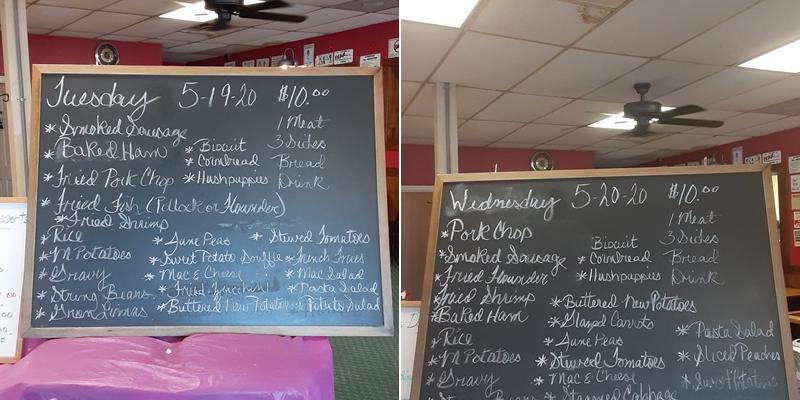 Tuesday 5-19-20 $10.00
* Smoked Sausage 1 Meat
Baked Ham * Biscuit 3 Sides
* Cornbread Bread
* Fried Pork Chop * Hushpuppies Drink
* Fried Fish (Pollock or Flounder)
* Fried Shrimp
* Rice * June Peas * Stewed Tomatoes
* M Potatoes * Sweet Potato Souffle * French Fries
* Gravy * Mac & Cheese * Mac Salad
* String Beans * Fried Zucchini * Pasta Salad
* Green Limas * Buttered New Potatoes * Potato Salad
Wednesday 5-20-20 $10.00
* Pork Chop 1 Meat
Biscuit 3 Sides
* Smoked Sausage * Cornbread Bread
* Fried Flounder * Hushpuppies Drink
* Fried Shrimp * Buttered New Potatoes
* Baked Ham * Glazed Carrots * Pasta Salad
* Rice * June Peas
* M Potatoes * Stewed Tomatoes * Sliced Peaches
* Gravy * Mac & Cheese * Sweet Potatoes
Beans * Steamed Cabbage